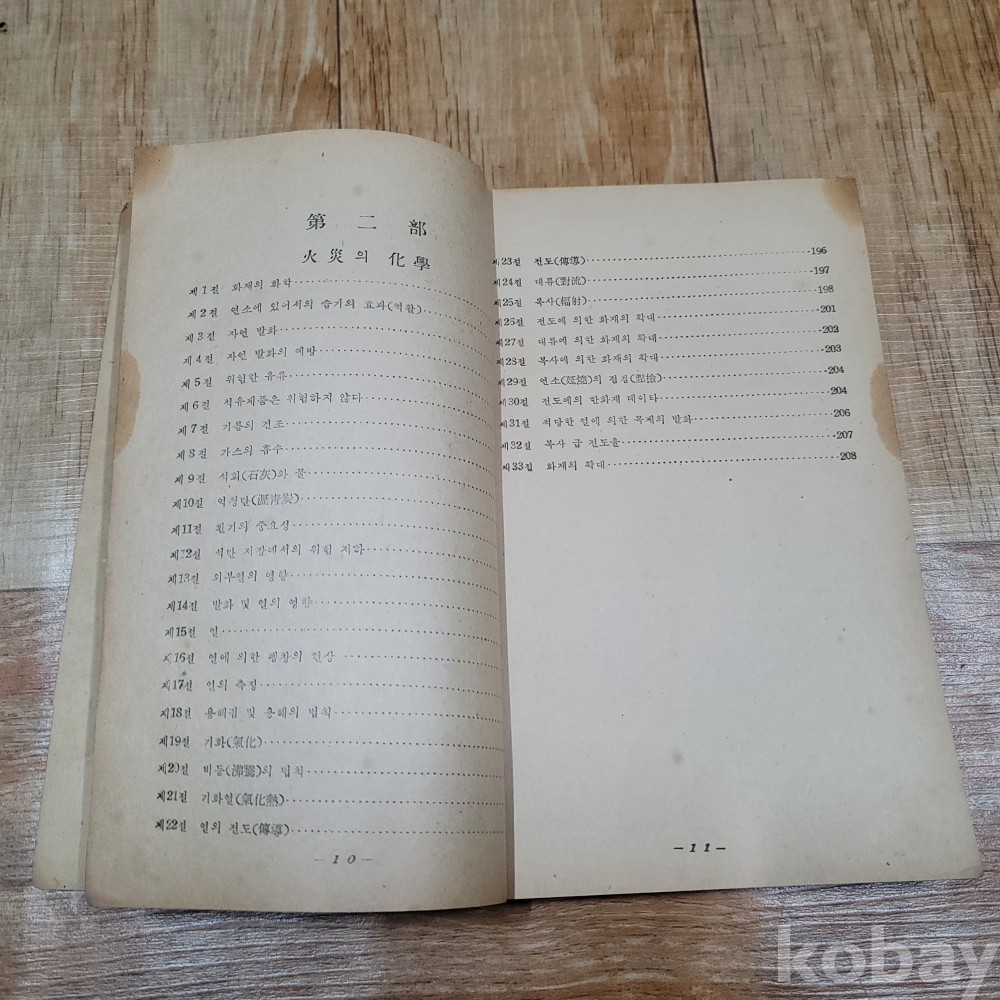 第二部
火災의 化學
제1절 화재의 화학
제2절 연소에 있어서의 습기의 효과(역활)
제3절 자연 발화
제4절 자연 발화의 예방
제5절 위험한 유류
제6절 석유제품은 위험하지 않다
제7절 기름의 건조
제8절 가스의 흡수
제9절 석회(石灰)와 물
제10절 역청탄(瀝靑炭)
제11절 환기의 중요성
제12절 석탄 저장에서의 위험
제13절 외부열의 영향
제14절 발화 및 열의 영향
제15절 열
제16절 열에 의한 팽창의 현상
제17절 열의 측정
제18절 용해점 및 용해의 법칙
제19절 기화(氣化)
제20절 비등(沸騰)의 법칙
제21절 기화열(氣化熱)
제22절 열의 전도(傳導)
—10—
제23절 전도(傳導) 196
제24절 대류(對流) 197
제25절 복사(輻射) 198
제26절 전도에 의한 화재의 확대 201
제27절 대류에 의한 화재의 확대 202
제28절 복사에 의한 화재의 확대 203
제29절 연소(延燒)의 점검(點檢) 204
제30절 전도에의 한화재 데이타 204
제31절 적당한 열에 의한 목재의 발화 206
제32절 복사 급 전도율 207
제33절 화재의 확대 208
—11—
kobay